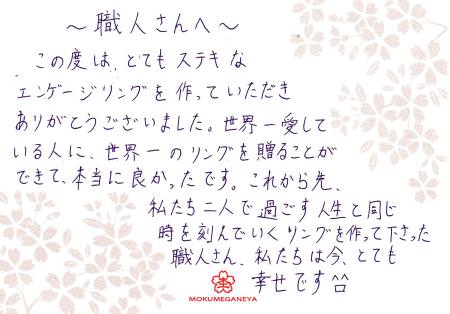 ～職人さんへ～
この度は、とてもステキな
エンゲージリングを作っていただき
ありがとうございました。世界一愛して
いる人に、世界一のリングを贈ることが
できて、本当に良かったです。これから先、
私たち二人で過ごす人生と同じ
時を刻んでいくリングを作って下さった
職人さん、私たちは今、とても
幸せです^^
MOKUMEGANEYA